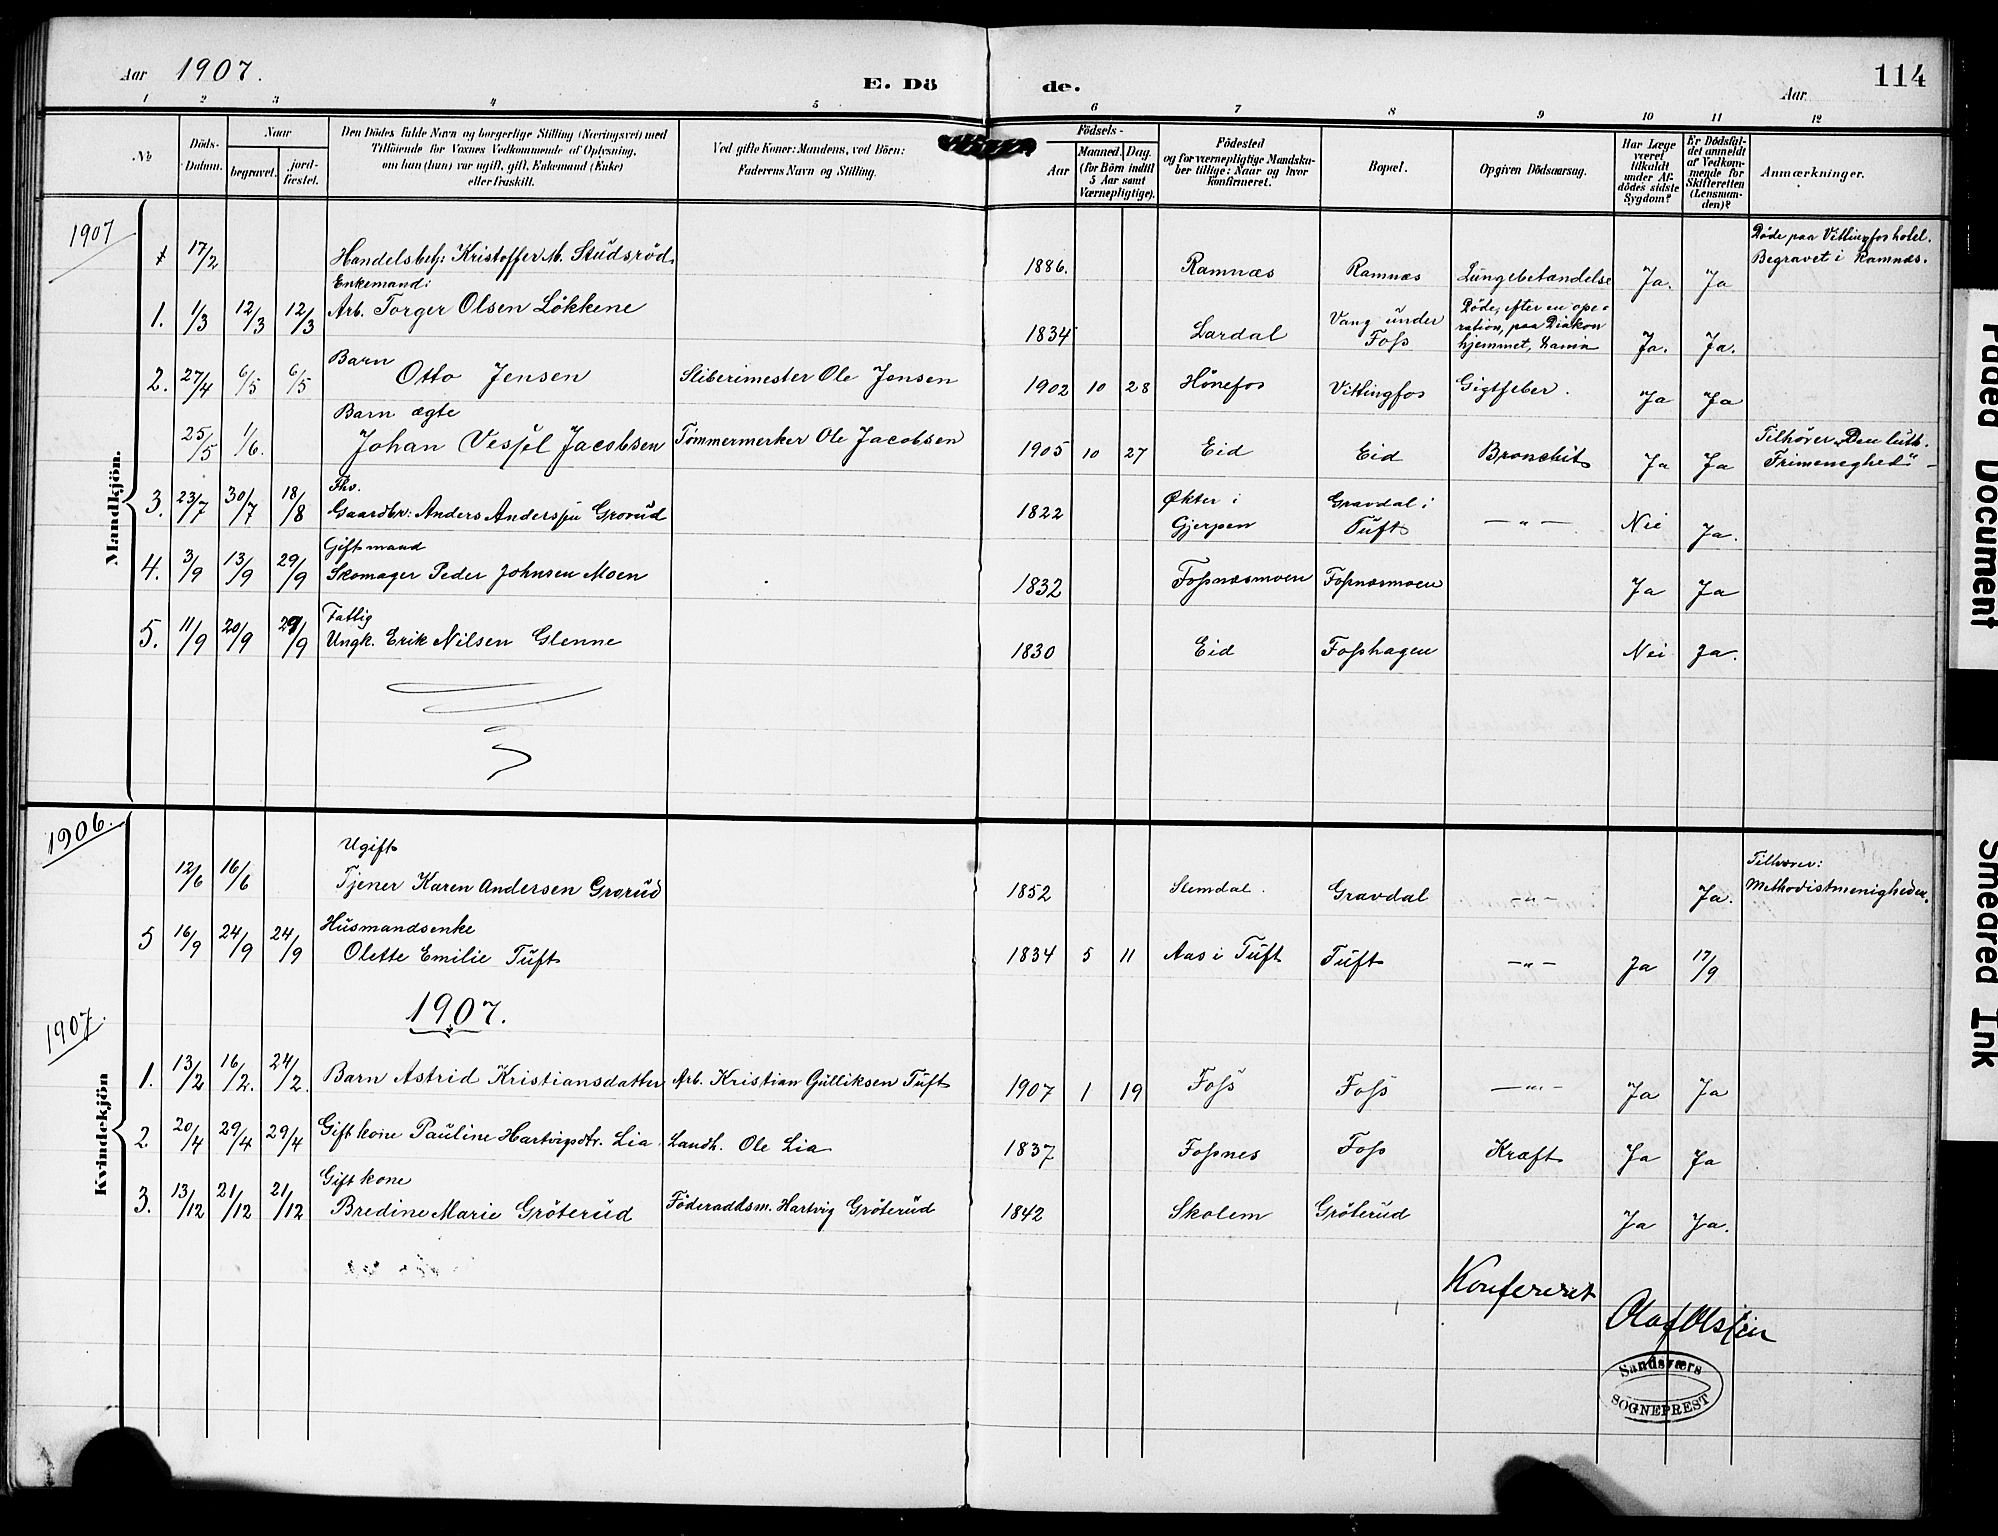 Aar 1907.
E. Dö de.
Aar
114
1 2 3 4 5 6 7 8 9 10 11 12
No
Döds-Datum.
Naar
begravet.
jord-fæstet.
Den Dödes fulde Navn og borgerlige Stilling (Næringsvei) med
Tilföiende for Voxnes Vedkommende af Oplysning,
om han (hun) var ugift, gift, Enkemand (Enke)
eller fraskilt.
Ved gifte Koner: Mandens, ved Börn:
Faderens Navn og Stilling.
Födsels-
Aar
Maaned. Dag.
(for Börn indtil
5 Aar samt
Værnepligtige).
Födested
og for værnepligtige Mandska-
ber tillige: Naar og hvor
konfirmeret.
Bopæl.
Opgiven Dödsaarsag.
Har Læge
været
tilkaldt
under Af-
dödes sidste
Sygdom?
Er Dödsfal-
det anmeldt
af Vedkom-
mende for
Skifteretten
(Lensman-
den)?
Anmærkninger.
1907
Mandkjön.
17/2 Handelsbetj: Kristoffer M. Studsröd 1886. Ramnæs Ramnæs Lungebetændelse Ja. Ja Døde paa Vittingfos hotel. Begravet i Ramnæs.
1. 1/3 12/3 12/3 Enkemand: Arb. Torger Olsen Lökkene 1834 Lardal Vang under Foss Døde, efter en ope-ration, paa Diakon hjemmet, Ja. Ja.
2. 27/4 6/5 6/5 Barn Otto Jensen Sliberimester Ole Jensen 1902 10 28 Hönefos Vittingfos Gigtfeber. Ja Ja
25/5 1/6. Barn ægte Johan Vessel Jacobsen Tømmermerker Ole Jacobsen 1905 10 27 Eid Eid Bronchit Ja Ja Tilhører "Den luth. Frimeneghed" -
3. 23/7 30/7 18/8 Fhv. Gaardbr: Anders Anderssen Grorud 1822 Økter i Gjerpen Gravdal i Tuft — " — Nei Ja.
4. 3/9 13/9 29/9 Gift mand Skomager Peder Johnsen Moen 1832 Fossnæsmoen Fossnæsmoen Ja Ja
5. 11/9 20/9 29/9 Fattig Ungk. Erik Nilsen Glenne 1830 Eid Fosshagen Nei Ja.
1906.
Kvindekjön
12/6 16/6 Ugift Tjener Karen Andersen Grorud 1852 Slemdal. Gravdal — " — Ja. Tilhører: Methodistmenigheden.
5 16/9 24/9 24/9 Husmandsenke Olette Emilie Tuft 1834 5 11 Aas i Tuft Tuft — " — Ja 17/9
1907.
1907.
1. 13/2 16/2. 24/2. Barn Astrid Kristiansdatter Arb. Kristian Gulliksen Tuft 1907 1 19 Foss Foss — " — Ja Ja
2. 20/4 29/4 29/4 Gift kone Pauline Hartvigsdtr. Lia. Landh. Ole Lia 1837 Fossnes Foss Kræft Ja Ja
3. 13/12 21/12 21/12 Gift kone Bredine Marie Gröterud Föderaadsm. Hartvig Gröterud 1842 Skolem Gröterud Ja Ja.
Konfereret
Olaf Olssen
Sandsværs
SOGNEPREST
Faded Document
Smeared Ink